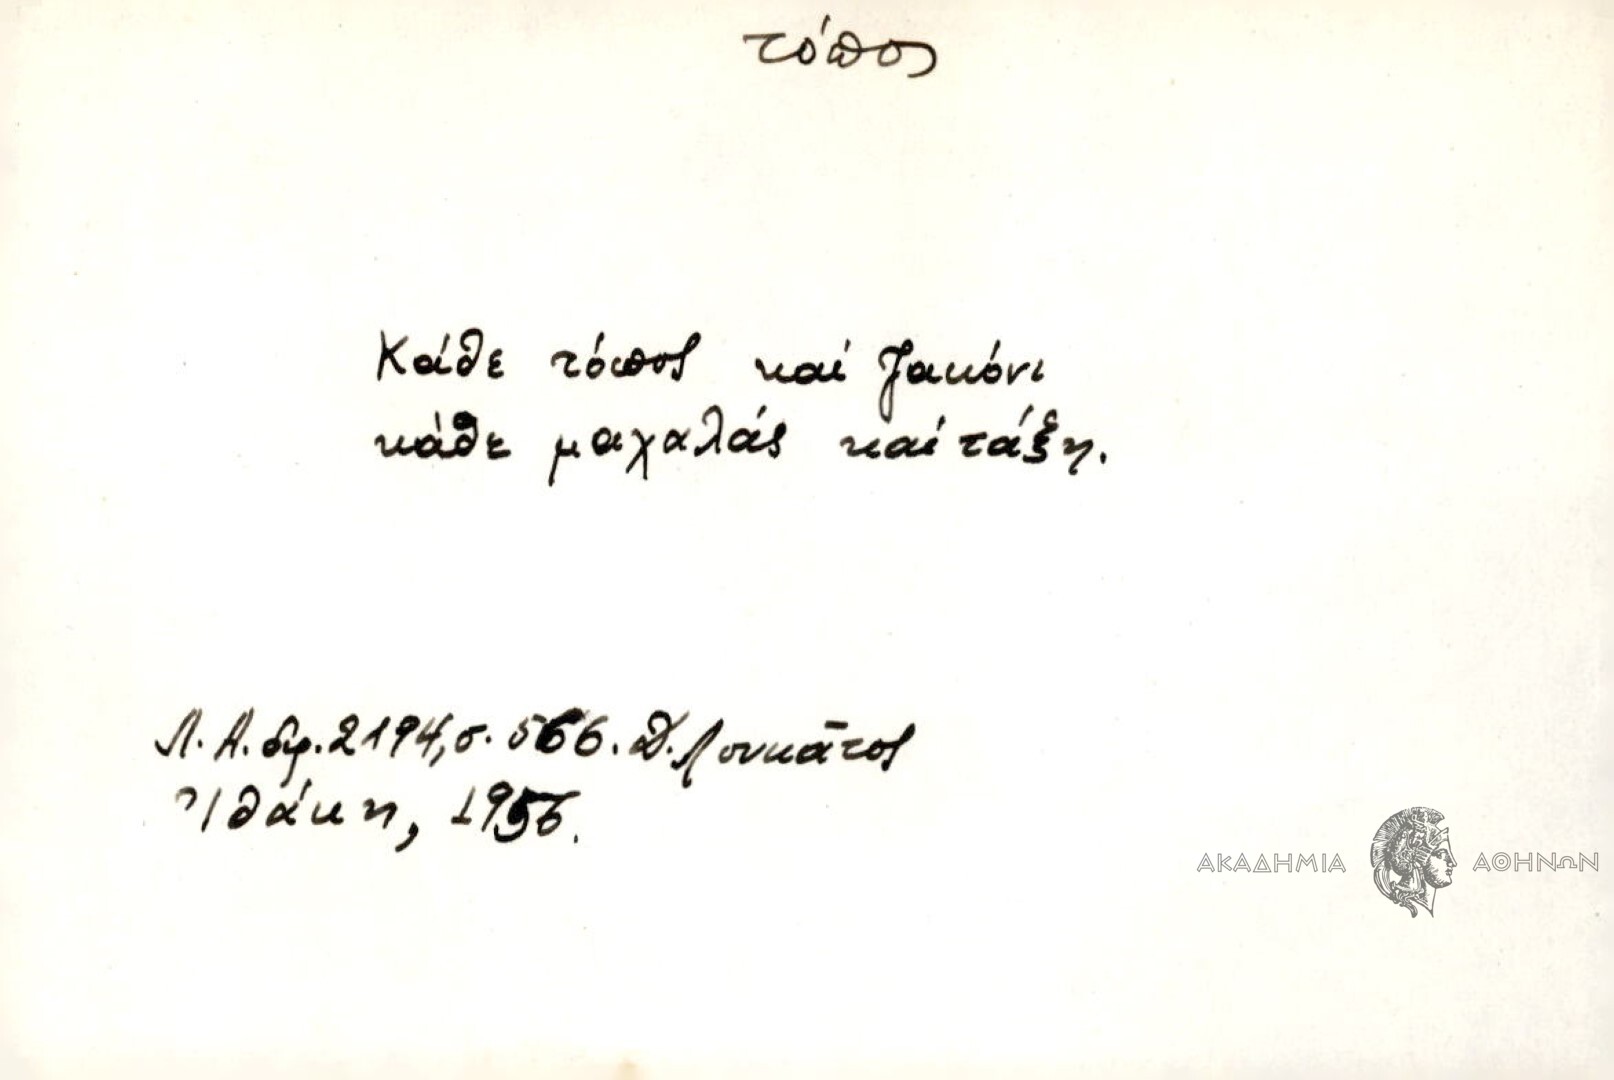 τόπος
Κάθε τόπος καί ζακόνι
κάθε μαχαλάς καί τάξη.
Λ. Α. δρ. 2194, σ. 566. Δ. Λουκᾶτος
Ἰθάκη, 1956.
ΑΚΑΔΗΜΙΑ ΑΘΗΝΩΝ